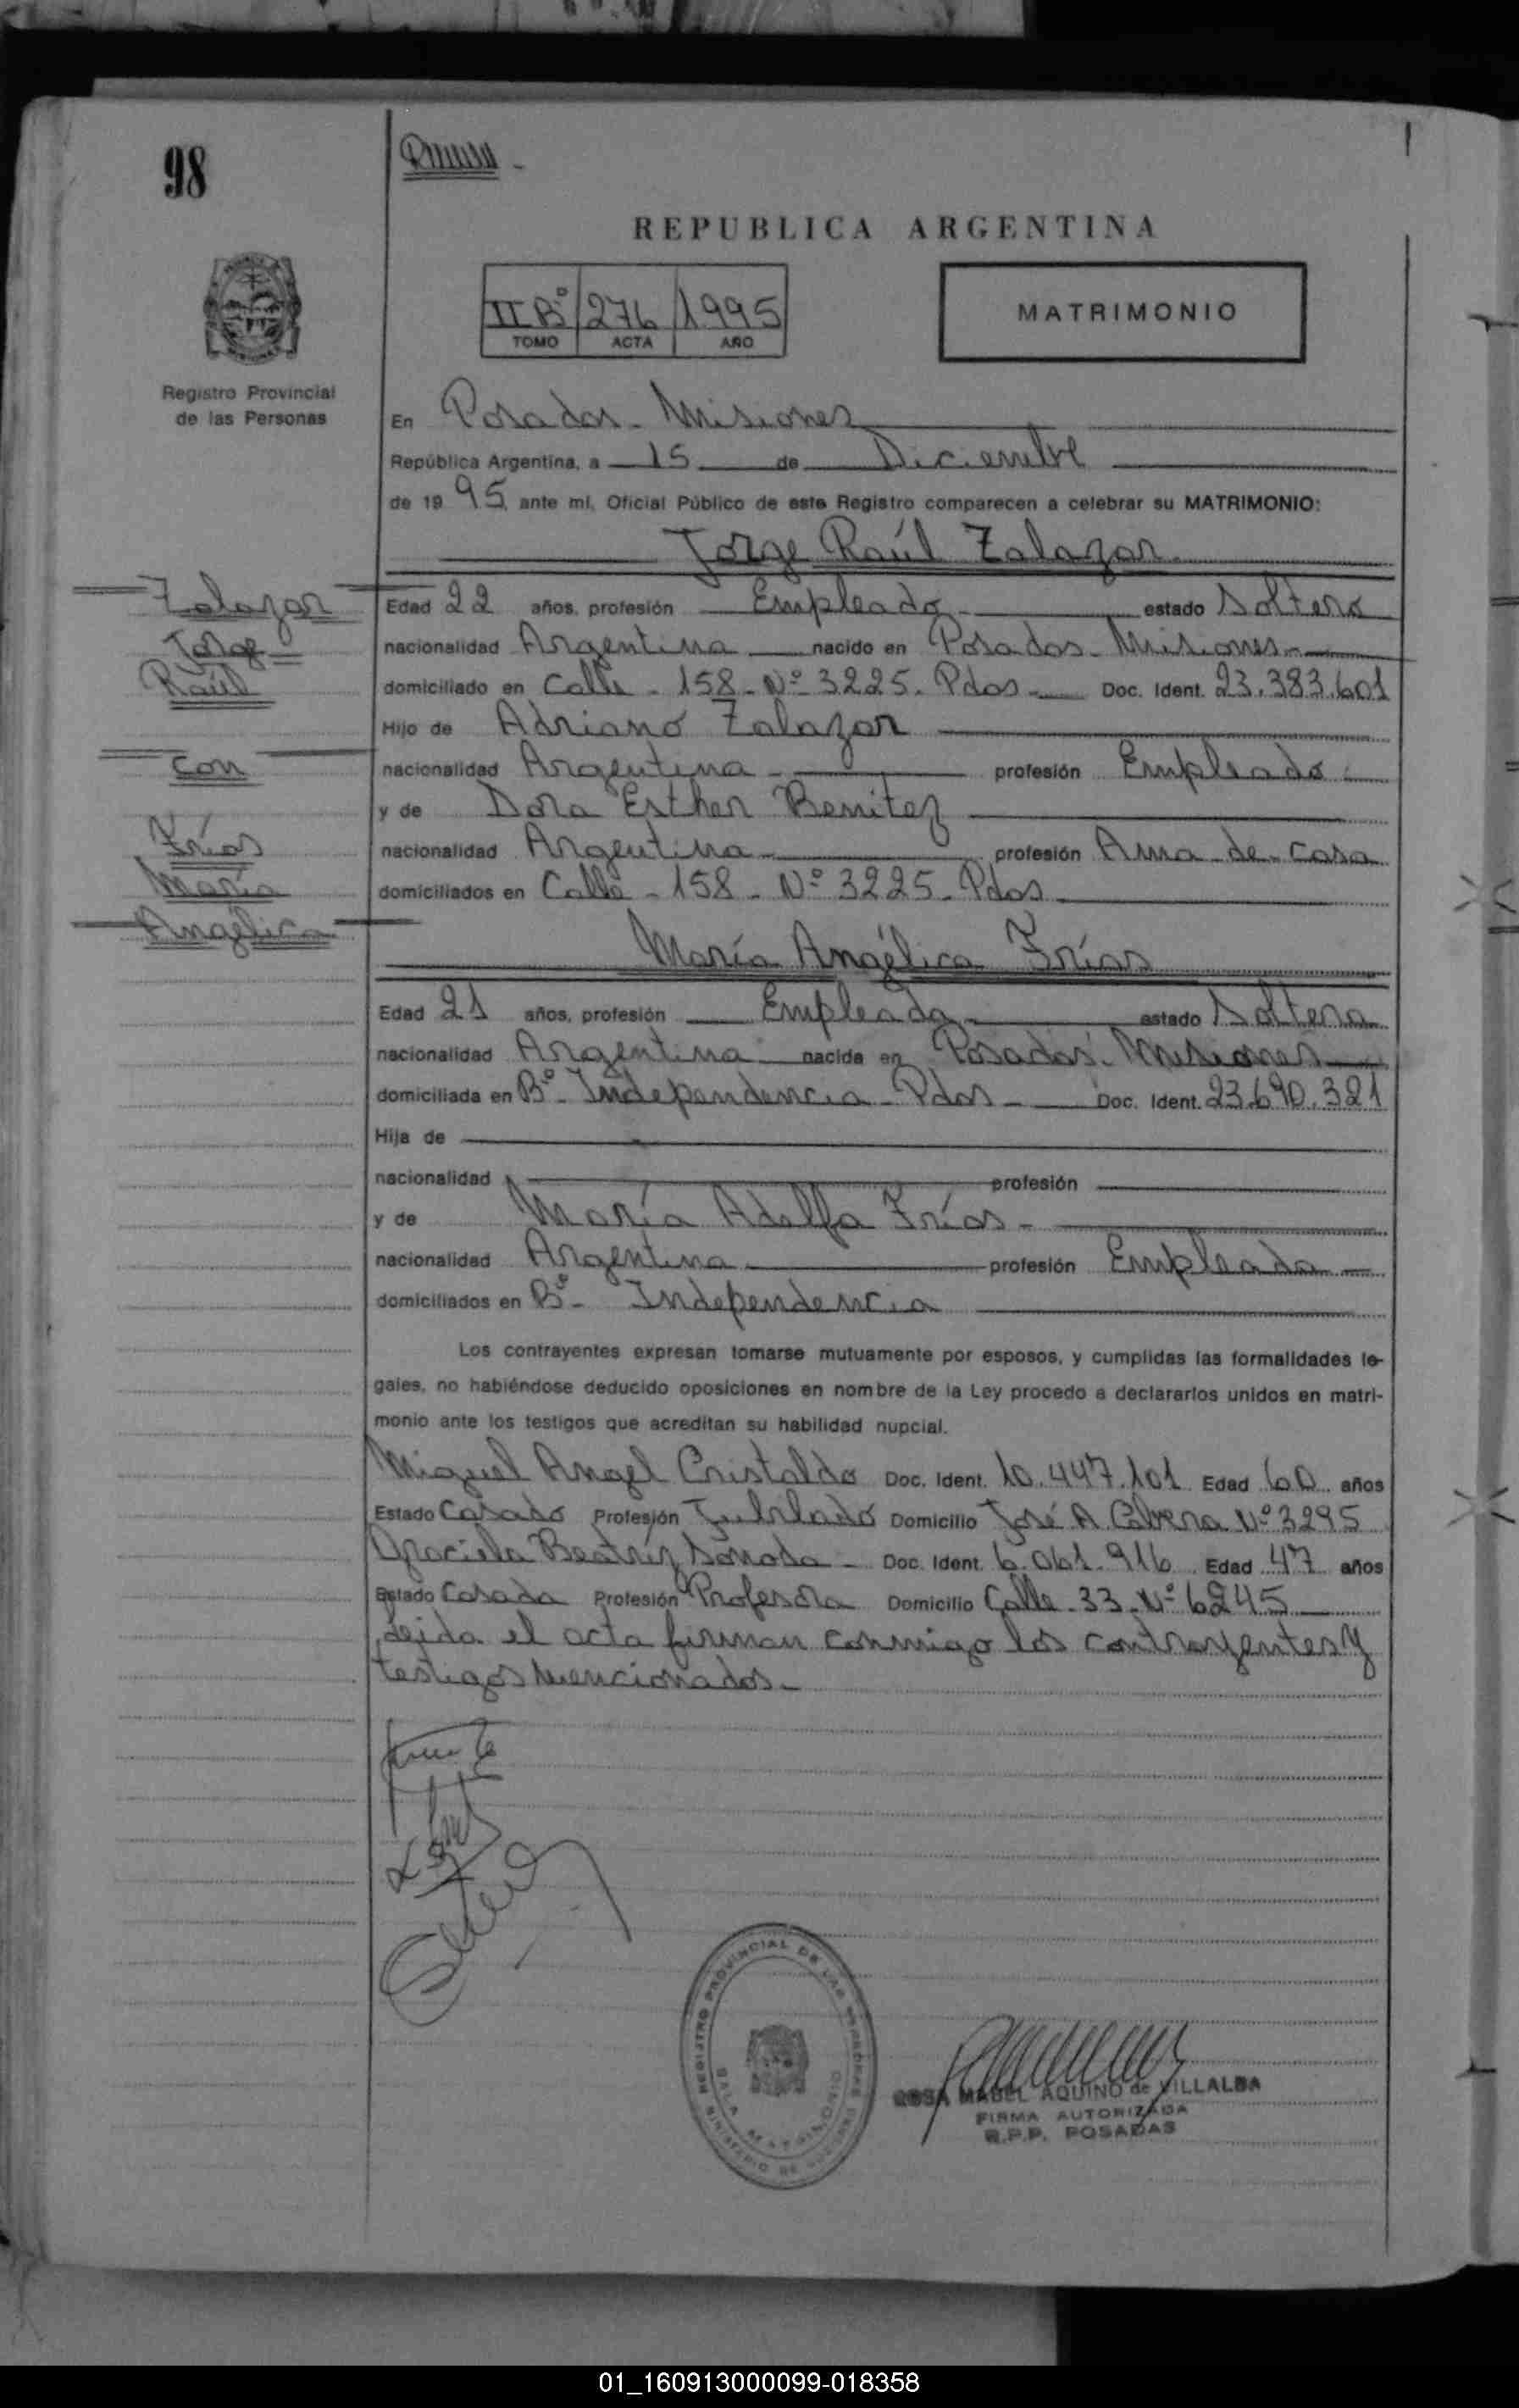 98
REPUBLICA ARGENTINA
IIBº 276 1995
TOMO ACTA AÑO
MATRIMONIO
Registro Provincial
de las Personas
En Posadas - Misiones
República Argentina, a 15 de Diciembre
de 1995, ante mí, Oficial Público de este Registro comparecen a celebrar su MATRIMONIO:
Jorge Raúl Zalazar
Zalazar
Jorge
Raúl
con
Frías
María
Angélica
Edad 22 años, profesión Empleado estado Soltero
nacionalidad Argentina nacido en Posadas - Misiones
domiciliado en Calle - 158 - Nº 3225. Pdas Doc. Ident. 23.383.601
Hijo de Adriano Zalazar
nacionalidad Argentina profesión Empleado
y de Dora Esther Benitez
nacionalidad Argentina profesión Ama - de - casa
domiciliados en Calle - 158 - Nº 3225. Pdas
María Angélica Frías
Edad 21 años, profesión Empleada estado Soltera
nacionalidad Argentina nacida en Posadas. Misiones
domiciliada en Bº - Independencia - Pdas - Doc. Ident. 23.690.321
Hija de
nacionalidad profesión
y de María Adolfa Frías -
nacionalidad Argentina profesión Empleada
domiciliados en Bº - Independencia
Los contrayentes expresan tomarse mutuamente por esposos, y cumplidas las formalidades le-
gales, no habiéndose deducido oposiciones en nombre de la Ley procedo a declararlos unidos en matri-
monio ante los testigos que acreditan su habilidad nupcial.
Miguel Angel Cristaldo Doc. Ident. 10.447.101 Edad 60 años
Estado Casado Profesión Jubilado Domicilio José A Cabrera Nº 3295
Graciela Beatríz Doc. Ident. 6.061.916 Edad 47 años
Estado Casada Profesión Profesora Domicilio Calle - 33 - Nº 6245
leida el acta firman conmigo los contrayentes y
testigos mencionados -
REGISTRO PROVINCIAL DE LAS PERSONAS
SALA MATRIMONIO
MINISTERIO DE GOBIERNO
ROSA MABEL AQUINO de VILLALBA
FIRMA AUTORIZADA
R.P.P. POSADAS
01_160913000099-018358